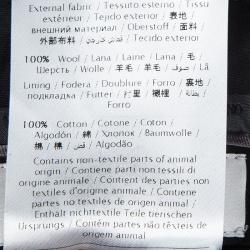 External fabric / Tessuto esterno / Tissu
extérieur / Tejido exterior / 表地 /
внешний материал / Oberstoff / 面料 /
外部布料 / قماش خارجي / Tecido exterior
100% Wool / Lana / Laine / Lana / 毛 /
Шерсть / Wolle / 羊毛 / 羊毛 / صوف / Lã
Lining / Fodera / Doublure / Forro / 裏地 /
подкладка / Futter / 打里 / 襯裡 / بطانة /
Forro
100% Cotton / Cotone / Coton /
Algodón / 綿 / Хлопок / Baumwolle /
棉 / 棉 / قطن / Algodão
Contains non-textile parts of animal
origin / Contiene parti non tessili di
origine animale / Contient des parties non
textiles d'origine animale / Contiene
partes no textiles de origen animal /
Enthält nichttextile Teile tierischen
Ursprungs / Contém partes não têxteis de
origem animal